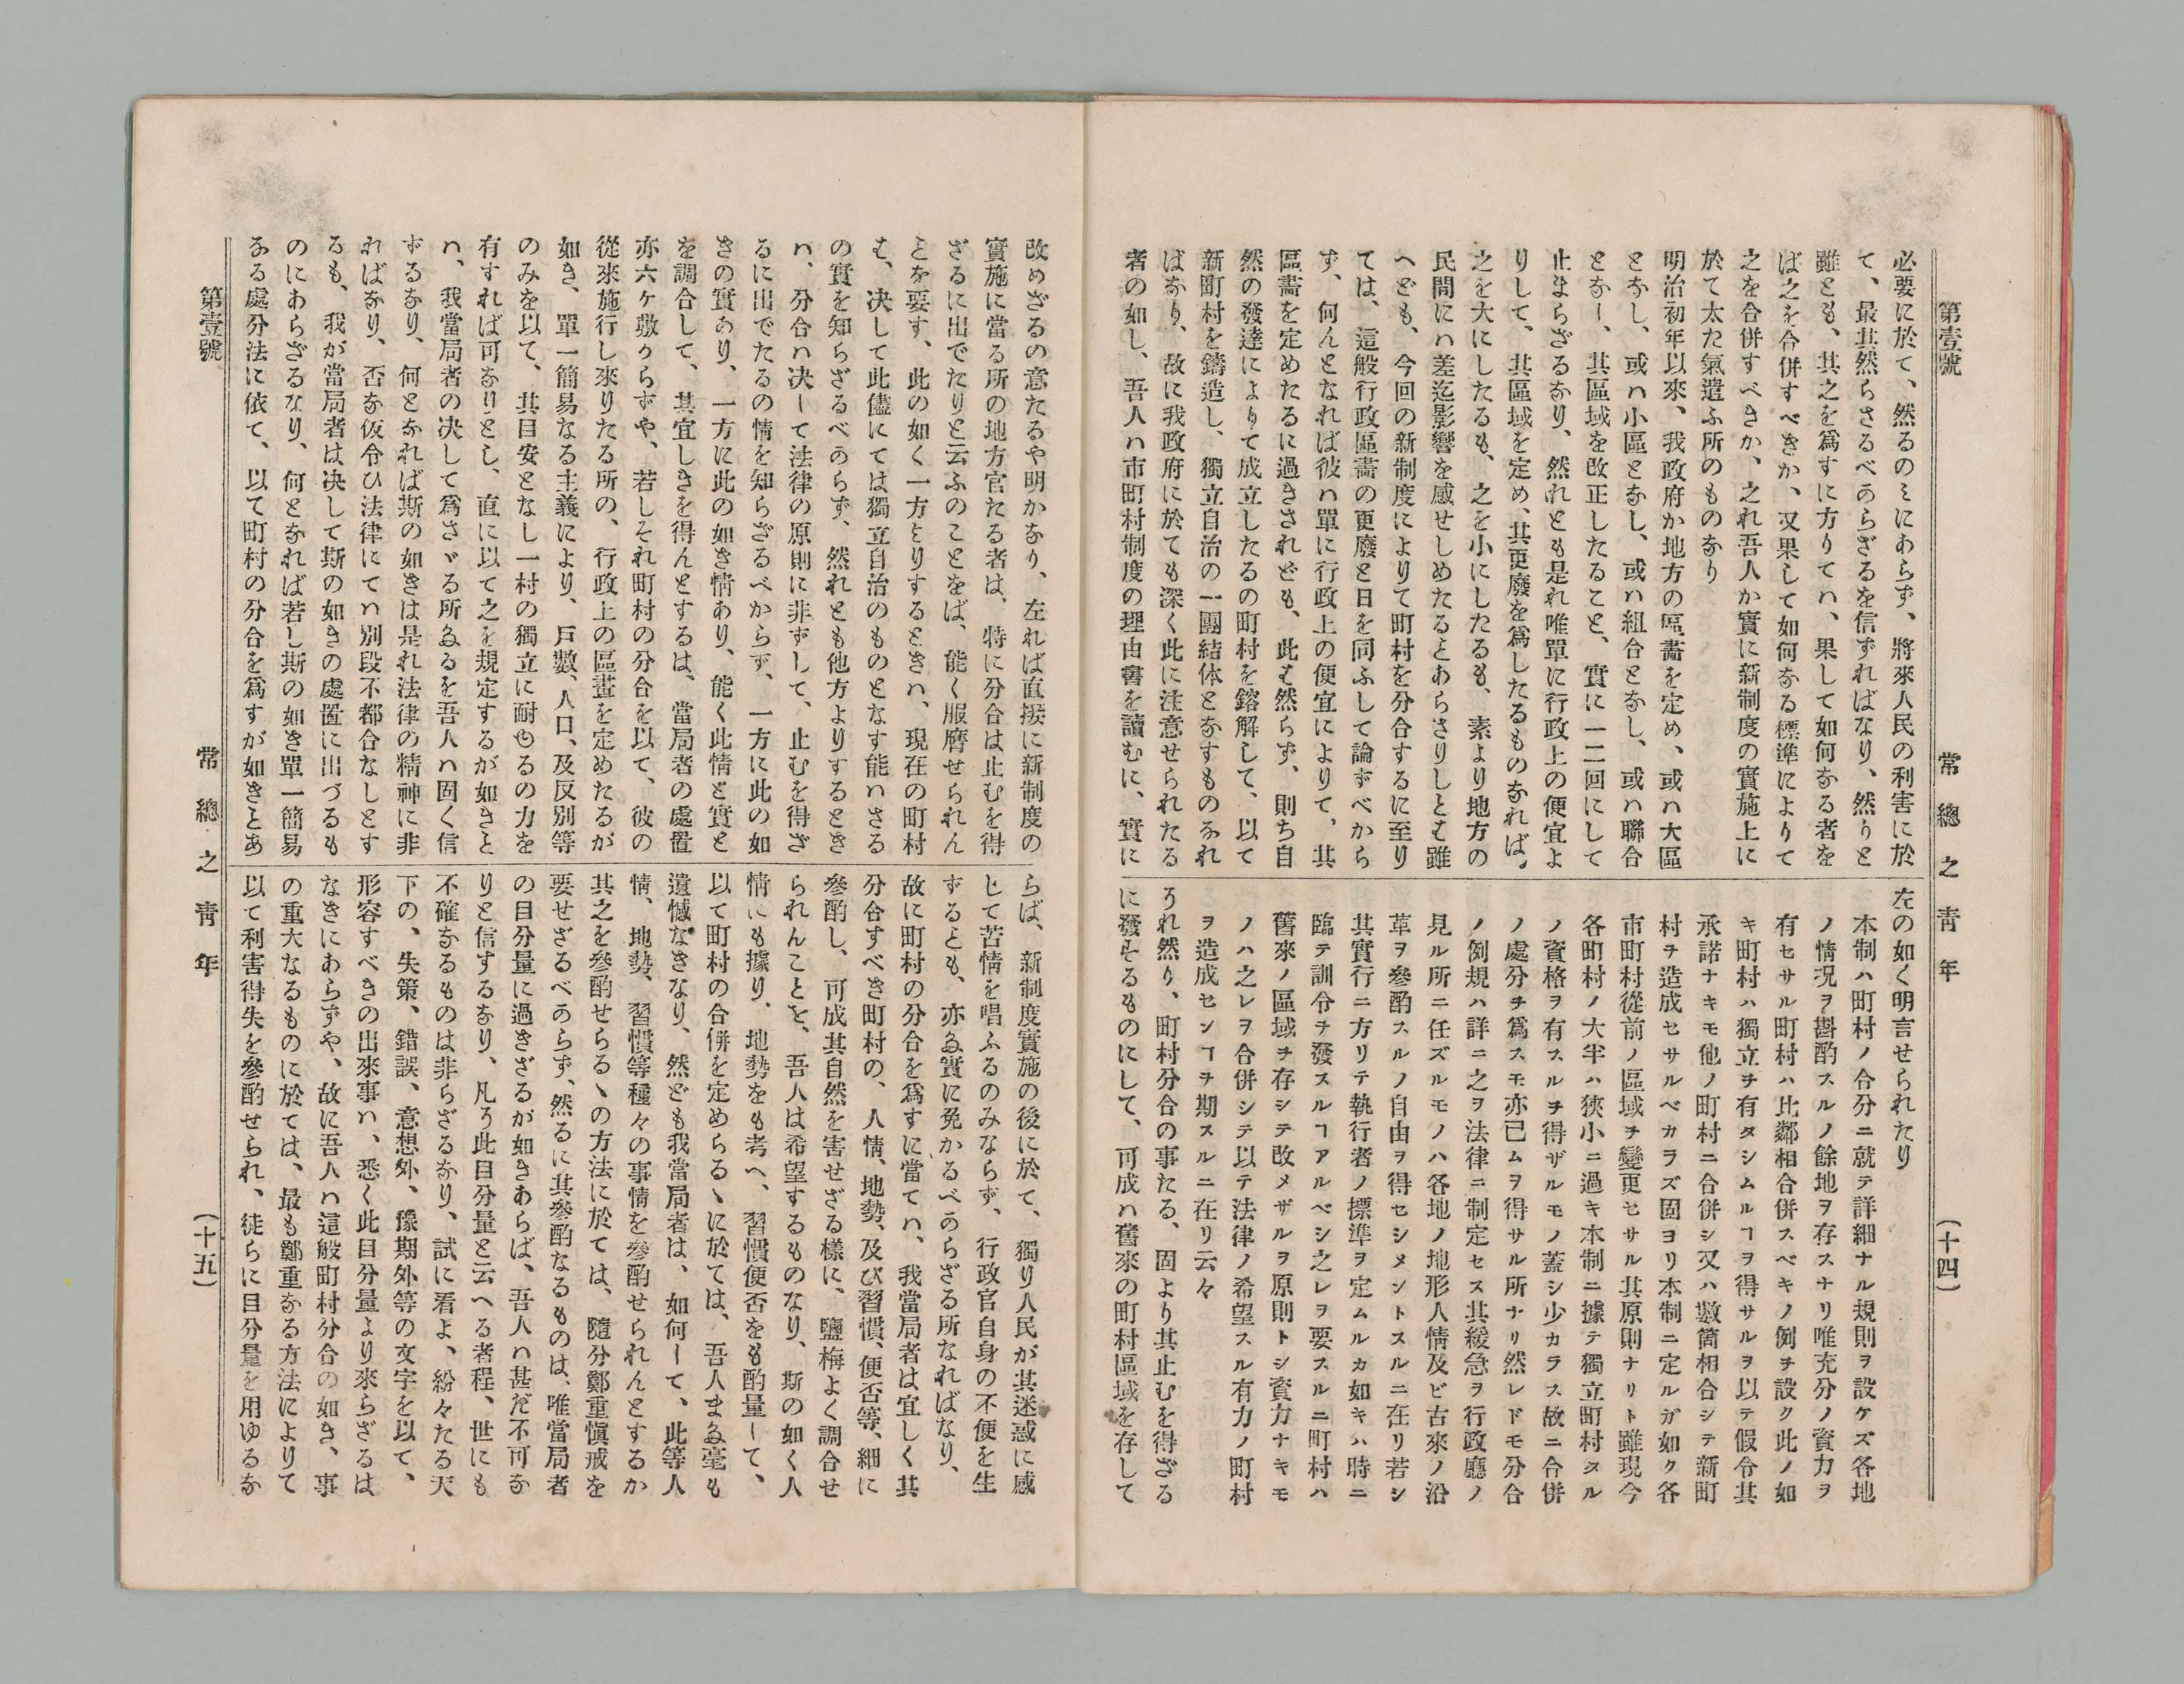 第壹號
常總之靑年
(十四)
必要に於て、然るのミにあらず、將來人民の利害に於
て、最其然らさるべからざるを信ずればなり、然りと
雖とも、其之を爲すに方りてハ、果して如何なる者を
ば之を合併すべきか、又果して如何なる標準によりて
之を合併すべきか、之れ吾人か實に新制度の實施上に
於て太た氣遣ふ所のものなり
明治初年以來、我政府か地方の區畵を定め、或ハ大區
となし、或ハ小區となし、或ハ組合となし、或ハ聯合
となし、其區域を改正したること、實に一二回にして
止まらざるなり、然れとも是れ唯單に行政上の便宜よ
りして、其區域を定め、其更廢を爲したるものなれば、
之を大にしたるも、之を小にしたるも、素より地方の
民間にハ差迄影響を感せしめたるとあらさりしとも雖
へども、今回の新制度によりて町村を分合するに至り
ては、這般行政區畵の更廢と日を同ふして論ずべから
ず、何んとなれば彼ハ單に行政上の便宜によりて、其
區畵を定めたるに過きされども、此も然らず、則ち自
然の發達によりて成立したるの町村を鎔解して、以て
新町村を鑄造し、獨立自治の一團結体となすものなれ
ばなり、故に我政府に於ても深く此に注意せられたる
者の如し、吾人ハ市町村制度の理由書を讀むに、實に
左の如く明言せられたり
本制ハ町村ノ合分ニ就テ詳細ナル規則ヲ設ケズ各地
ノ情况ヲ斟酌スルノ餘地ヲ存スナリ唯充分ノ資力ヲ
有セサル町村ハ比鄰相合併スベキノ例ヲ設ク此ノ如
キ町村ハ獨立ヲ有タシムルヿヲ得サルヲ以テ假令其
承諾ナキモ他ノ町村ニ合併シ又ハ數箇相合シテ新町
村ヲ造成セサルベカラズ固ヨリ本制ニ定ルガ如ク各
市町村從前ノ區域ヲ變更セサル其原則ナリト雖現今
各町村ノ大半ハ狹小ニ過キ本制ニ據テ獨立町村タル
ノ資格ヲ有スルヲ得ザルモノ蓋シ少カラス故ニ合併
ノ處分ヲ爲スモ亦已ムヲ得サル所ナリ然レドモ分合
ノ例規ハ詳ニ之ヲ法律ニ制定セス其緩急ヲ行政廳ノ
見ル所ニ任ズルモノハ各地ノ地形人情及ビ古來ノ沿
革ヲ參酌スルノ自由ヲ得セシメントスルニ在リ若シ
其實行ニ方リテ執行者ノ標準ヲ定ムルカ如キハ時ニ
臨テ訓令ヲ發スルヿアルベシ之レヲ要スルニ町村ハ
舊來ノ區域ヲ存シテ改メザルヲ原則トシ資力ナキモ
ノハ之レヲ合併シテ以テ法律ノ希望スル有力ノ町村
ヲ造成センヿヲ期スルニ在リ云々
うれ然り、町村分合の事たる、固より其止むを得ざる
に發するものにして、可成ハ舊來の町村區域を存して
改めざるの意たるや明かなり、左れば直接に新制度の
實施に當る所の地方官たる者は、特に分合は止むを得
ざるに出でたりと云ふのことをば、能く服膺せられん
とを要す、此の如く一方よりするときハ、現在の町村
も、决して此儘にては獨立自治のものとなす能ハさる
の實を知らざるべからず、然れとも他方よりするとき
ハ、分合ハ决して法律の原則に非ずして、止むを得ざ
るに出でたるの情を知らざるべからず、一方に此の如
きの實あり、一方に此の如き情あり、能く此情と實と
を調合して、其宜しきを得んとするは、當局者の處置
亦六ケ敷からずや、若しそれ町村の分合を以て、彼の
從來施行し來りたる所の、行政上の區畫を定めたるが
如き、單一簡易なる主義により、戸數、人口、及反別等
のみを以て、其目安となし一村の獨立に耐ゆるの力を
有すれば可なりとし、直に以て之を規定するが如きと
ハ、我當局者の决して爲さゞる所なるを吾人ハ固く信
ずるなり、何となれば斯の如きは是れ法律の精神に非
ればなり、否な仮令ひ法律にてハ別段不都合なしとす
るも、我が當局者は决して斯の如きの處置に出づるも
のにあらざるなり、何となれば若し斯の如き單一簡易
なる處分法に依て、以て町村の分合を爲すが如きとあ
らば、新制度實施の後に於て、獨り人民が其迷惑に感
じて苦情を唱ふるのみならず、行政官自身の不便を生
ずるとも、亦な實に免かるべからざる所なればなり、
故に町村の分合を爲すに當てハ、我當局者は宜しく其
分合すべき町村の、人情、地勢、及び習慣、便否等、細に
參酌し、可成其自然を害せざる樣に、鹽梅よく調合せ
られんことを、吾人は希望するものなり、斯の如く人
情にも據り、地勢をも考へ、習慣便否をも酌量して、
以て町村の合併を定めらるゝに於ては、吾人また毫も
遺憾なきなり、然ども我當局者は、如何して、此等人
情、地勢、習慣等種々の事情を參酌せられんとするか
其之を參酌せらるゝの方法に於ては、隨分鄭重愼戒を
要せざるべからず、然るに其參酌なるものは、唯當局者
の目分量に過きざるが如きあらば、吾人ハ甚だ不可な
りと信するなり、凡う此目分量と云へる者程、世にも
不確なるものは非らざるなり、試に看よ、紛々たる天
下の、失策、錯誤、意想外、豫期外等の文字を以て、
形容すべきの出來事ハ、悉く此目分量より來らざるは
なきにあらずや、故に吾人ハ這般町村分合の如き、事
の重大なるものに於ては、最も鄭重なる方法によりて
以て利害得失を參酌せられ、徒らに目分量を用ゆるな
第壹號
常總之靑年
(十五)